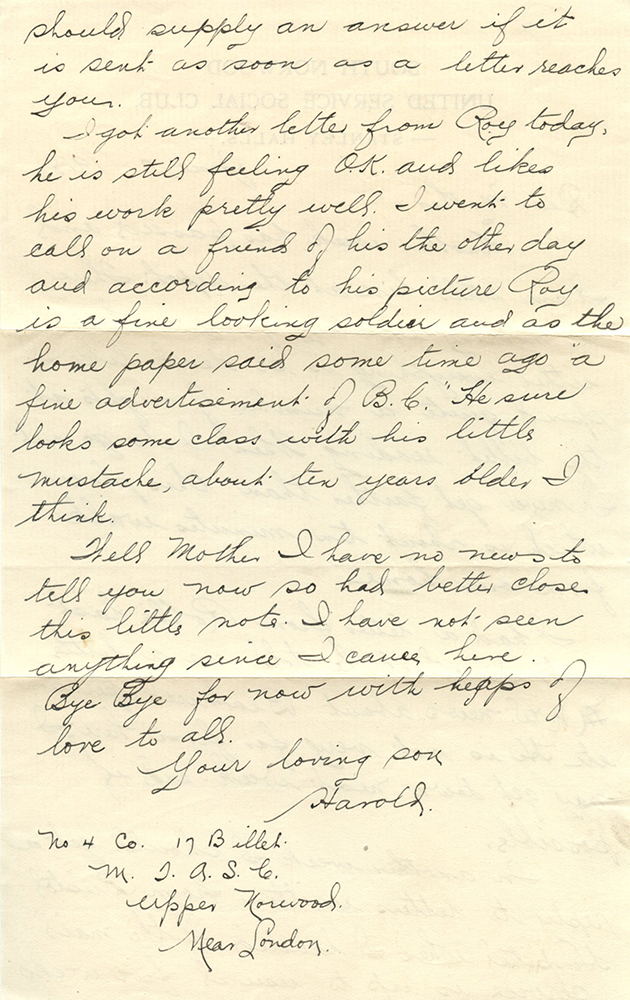 should supply an answer if it
is sent as soon as a letter reaches
you.
I got another letter from Roy today,
he is still feeling O.K. and likes
his work pretty well. I went to
call on a friend of his the other day
and according to his picture Roy
is a fine looking soldier and as the
home paper said some time ago "a
fine advertisement of B.C." He sure
looks some class with his little
mustache, about ten years older I
think.
Well Mother I have no news to
tell you now so had better close
this little note. I have not seen
anything since I came here.
Bye Bye for now with heaps of
love to all.
Your loving son
Harold.
No 4 Co. 17 Billet.
M. T. A. S. C.
Upper Norwood.
Near London.